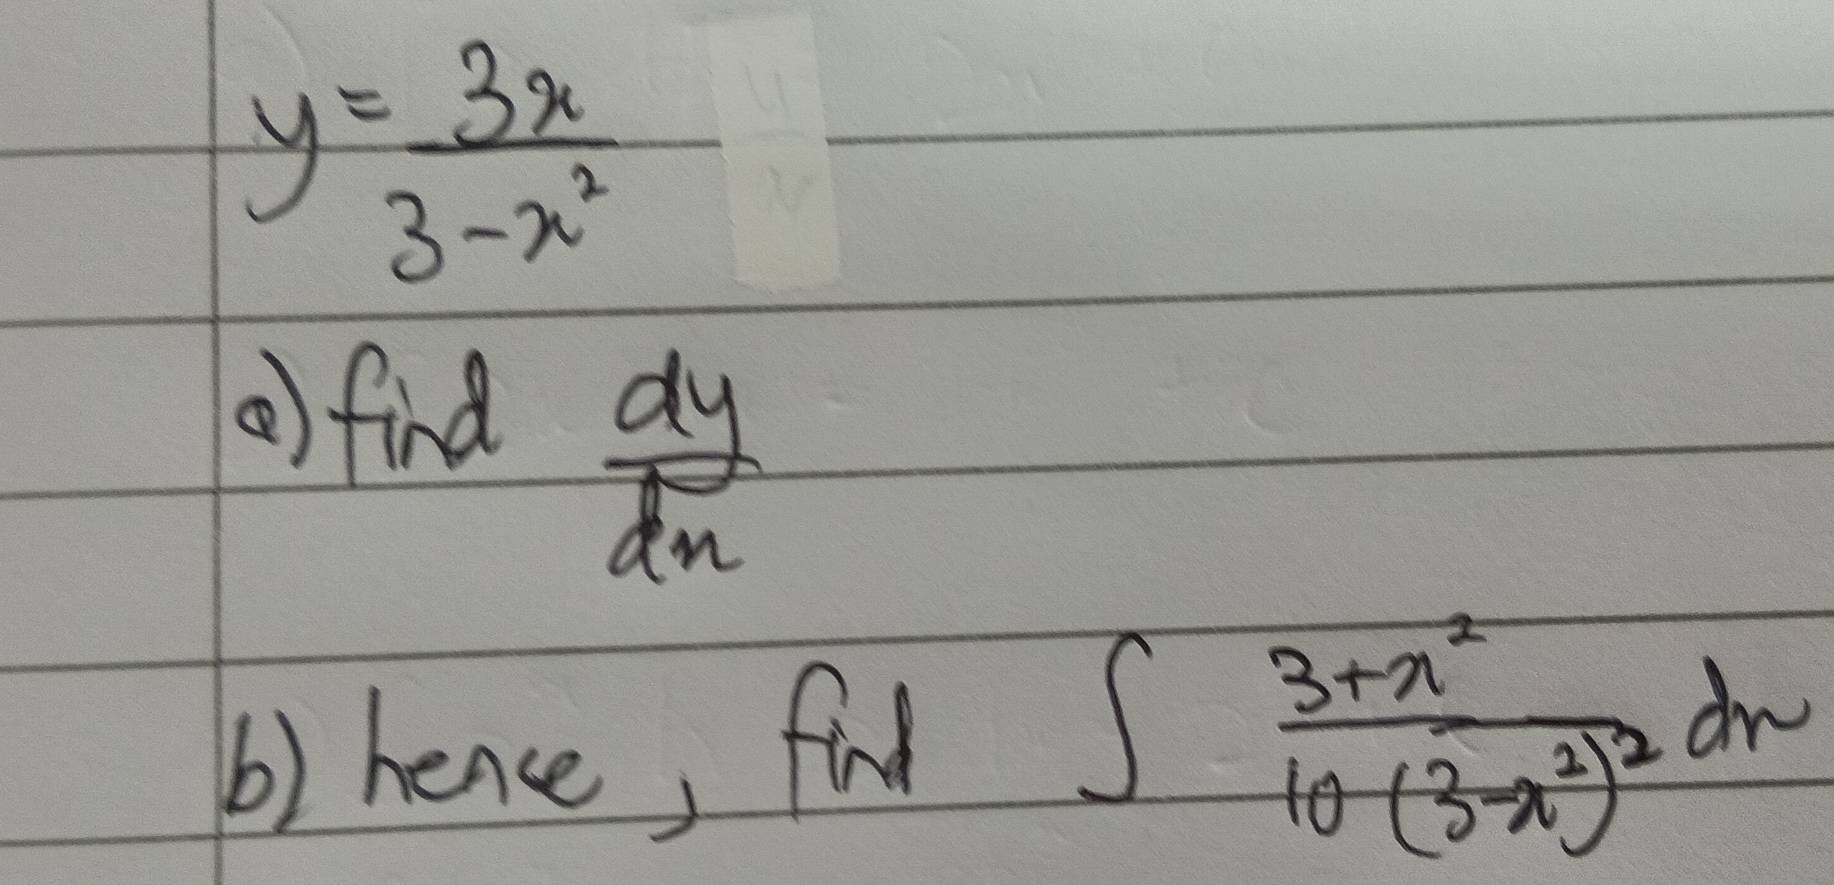 y = 3x / (3 - x²)
a) find dy/dx
b) hence, find ∫ (3 + x²) / (10 (3 - x²)²) dx